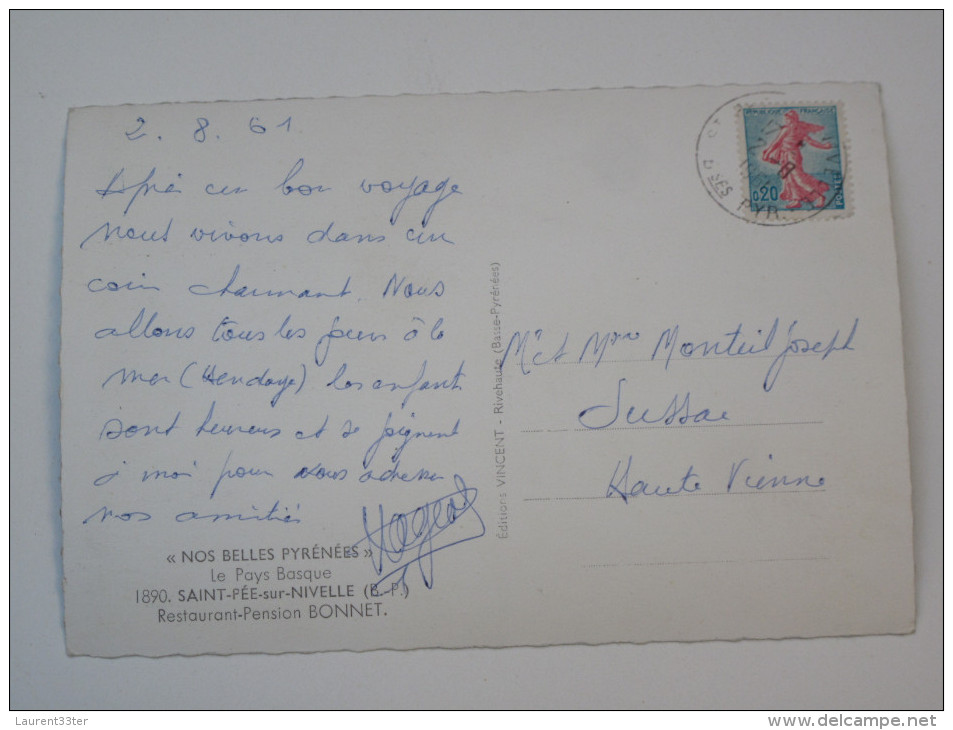 2.8.61
Après un bon voyage
nous vivons dans un
coin charmant. Nous
allons tous les jours à la
mer (Hendaye) les enfants
sont heureux et se joignent
à moi pour vous adresser
nos amitiés
« NOS BELLES PYRÉNÉES »
Le Pays Basque
1890. SAINT-PÉE-sur-NIVELLE (B.-P.)
Restaurant-Pension BONNET.
Éditions VINCENT - Rivehaute (Basse-Pyrénées)
RÉPUBLIQUE FRANÇAISE
0,20
POSTES
Bses PYR.
Mr et Mme Monteil Joseph
Sussac
Haute Vienne
Laurent33ter
delcampe.net